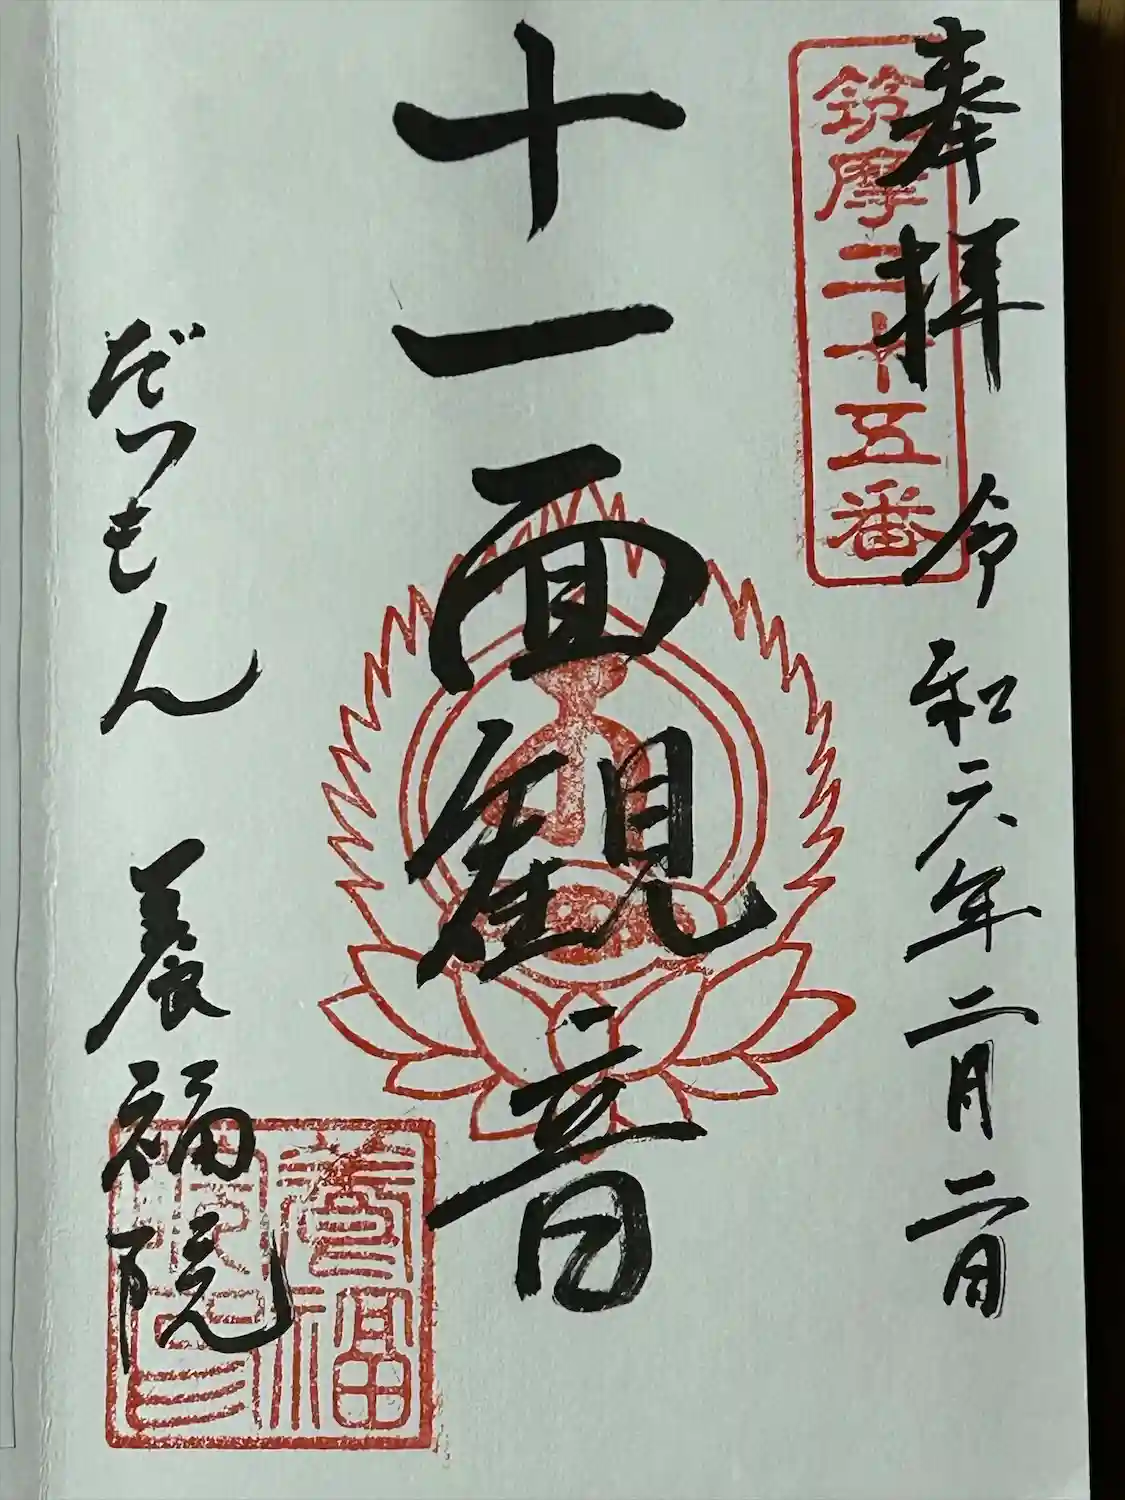 奉拝 令和六年二月二日
筑摩二十五番
十一面観音
だつもん 養福院
養福院印